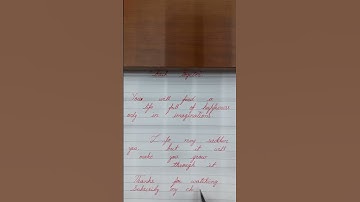 You will find a
life full of happiness
only in imaginations.
Life may sadden
you but it will
make you grow
through it
Thanks for watching
Subscribe my ch